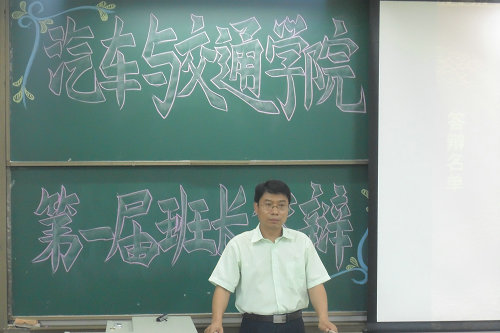 汽车与交通学院
第一届班长 辩
答辩名单